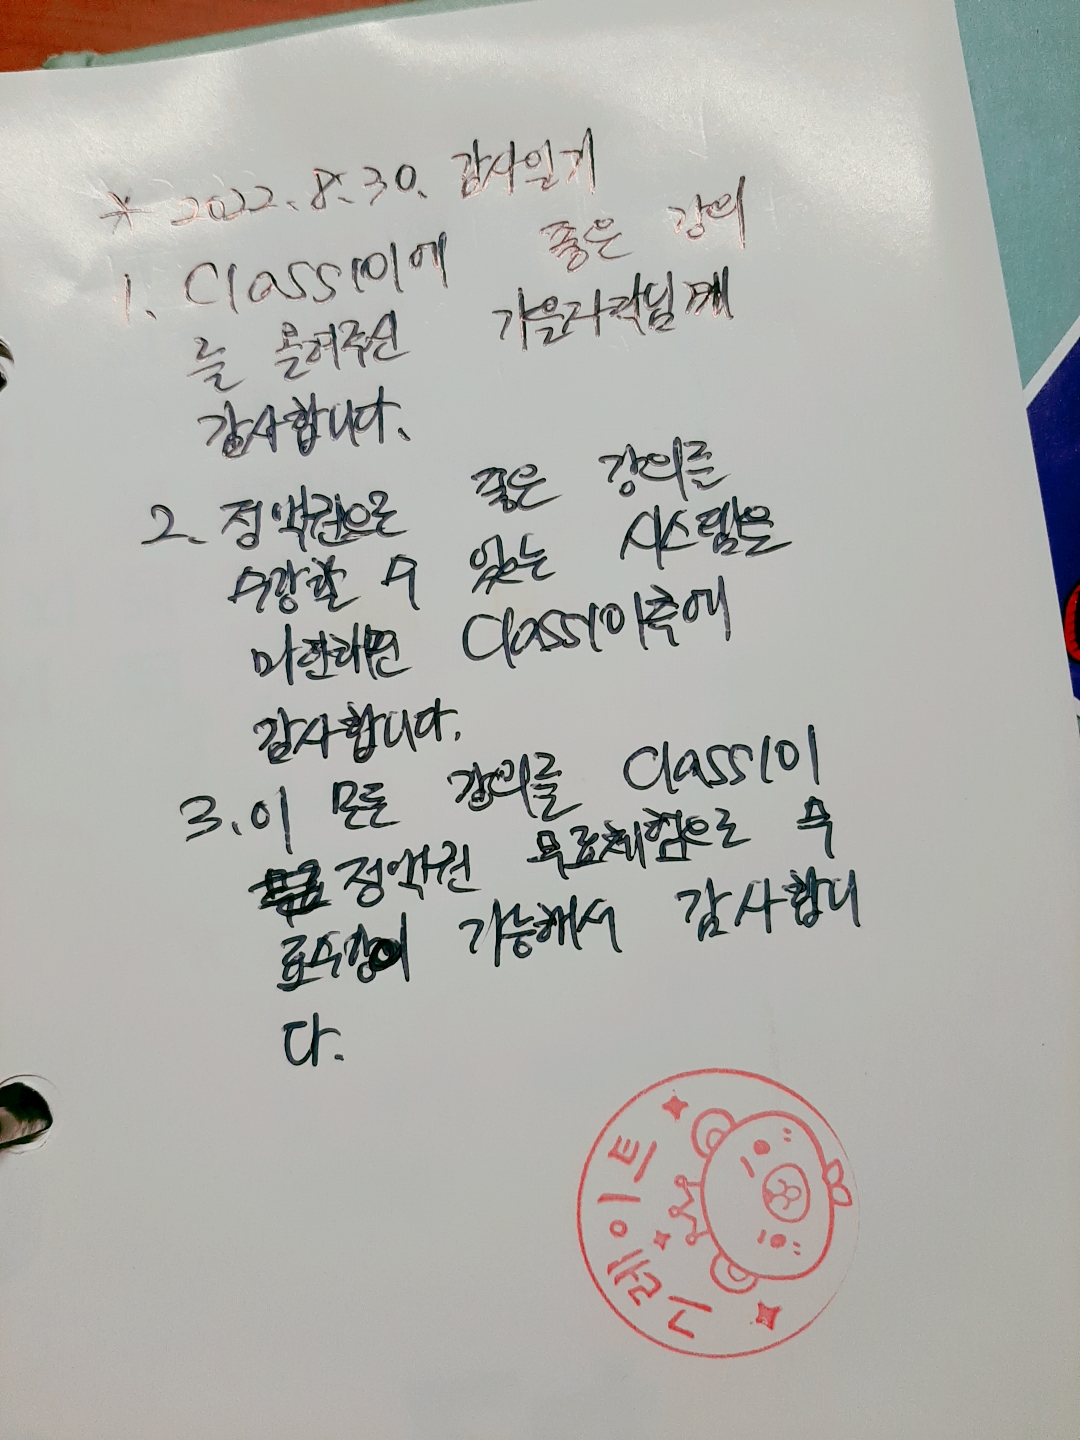 * 2022. 8. 30. 감사일기
1. Class101에 좋은 강의
를 올려주신 가을타락님께
감사합니다.
2. 정액권으로 좋은 강의를
수강할 수 있는 시스템을
마련해준 Class101측에
감사합니다.
3. 이 모든 강의를 Class101
정액권 무료체험으로 무
료수강이 가능해서 감사합니
다.
그레이트